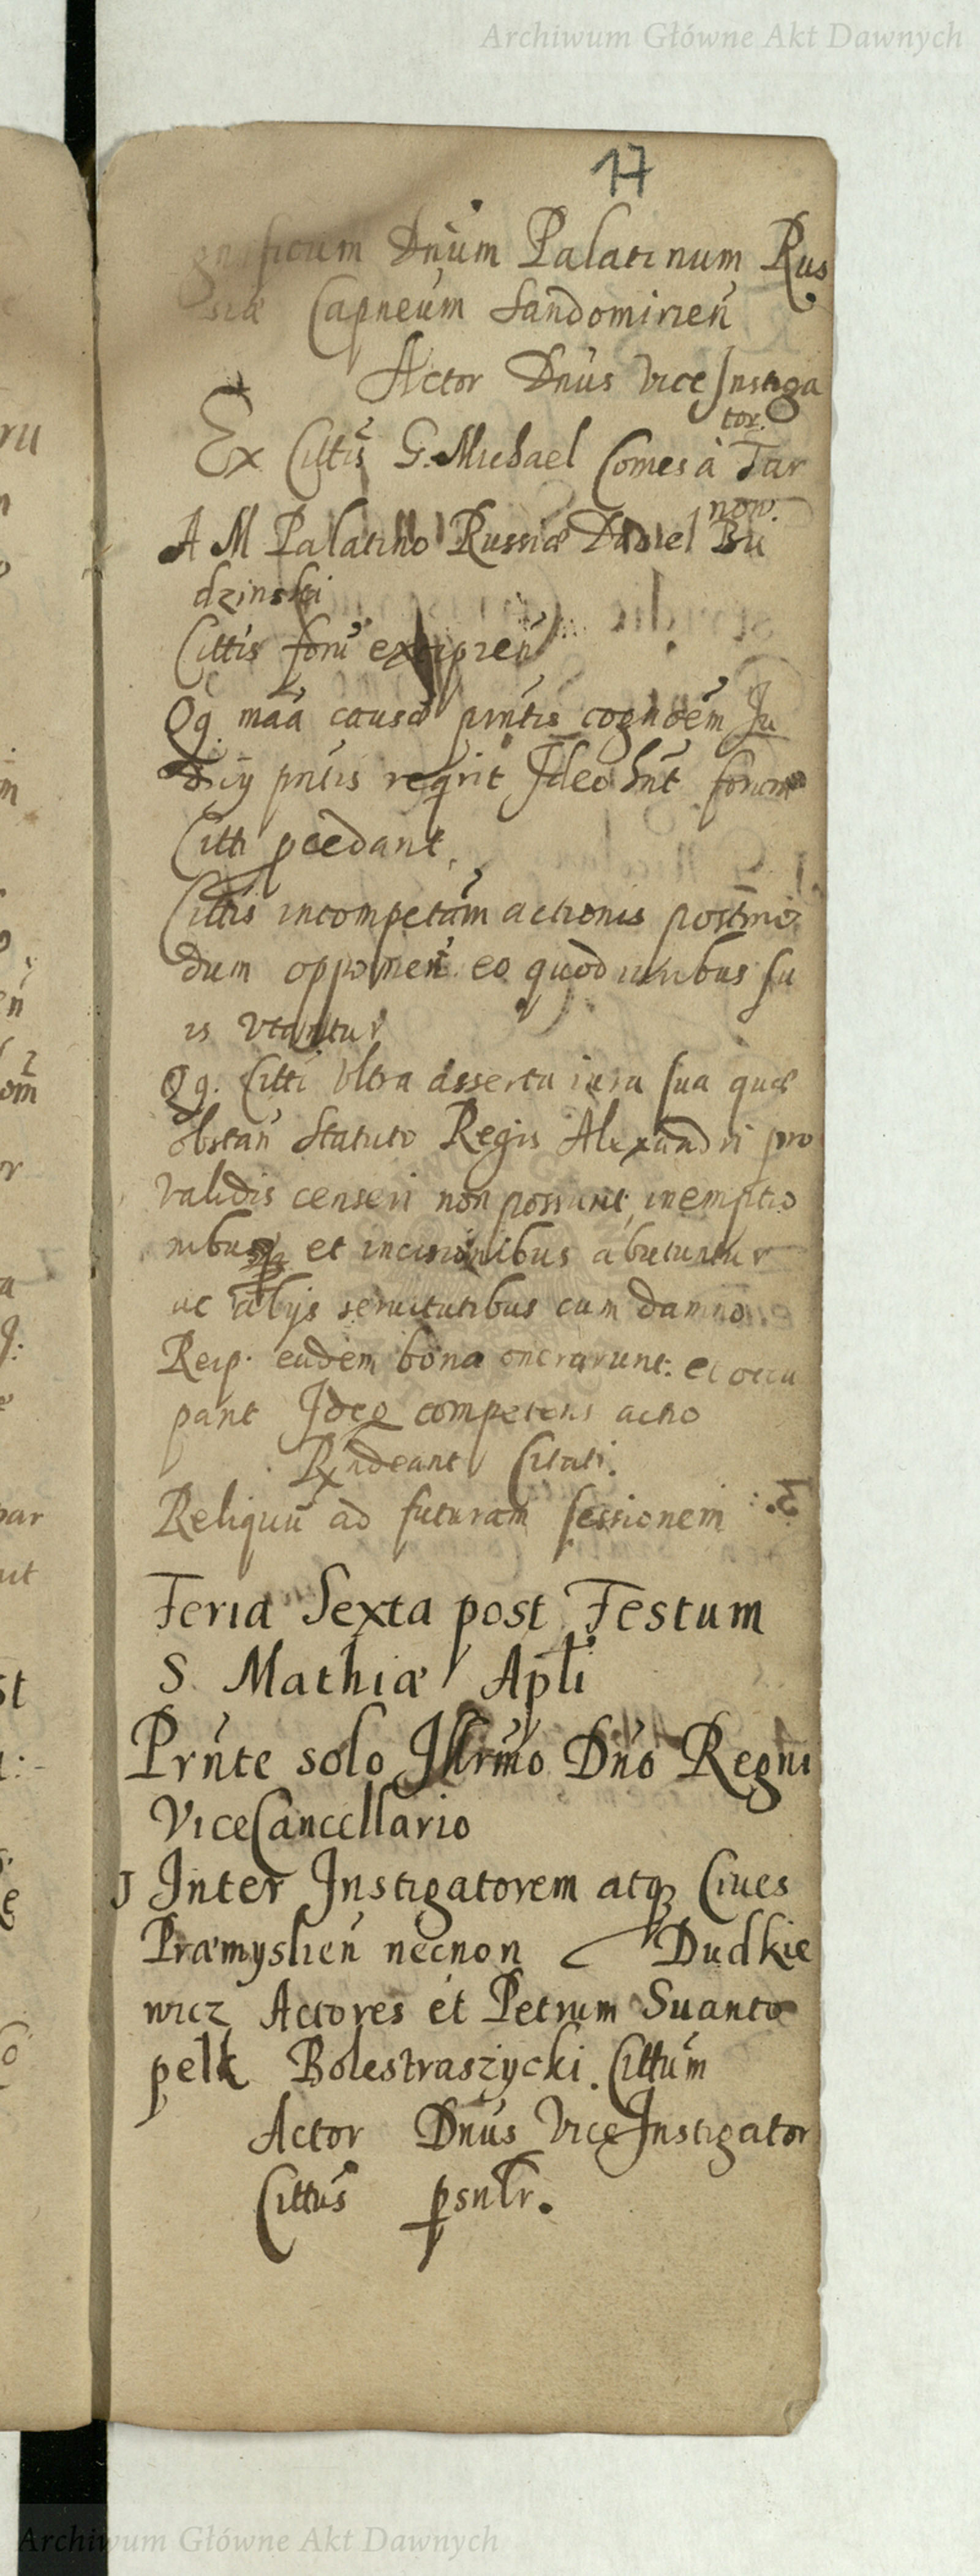 Archiwum Główne Akt Dawnych
17
gnificum Dnūm Palatinum Rus
siæ Capneūm Sandomirień
Actor Dnūs Vice Instiga
tor.
Ex Cittis G. Michael Comes à Tar
now.
A M Palatino Russiæ Daniel Bu
dzinski
Cittis fori excipień
Qq. māa causæ pnńtis cognoēm Ju
dicÿ pńtis reqrit Ideo hnt forum
Citti pcedant
Cittis incompetām actionis postmo
dum opponeń eo quod iuribus su
is vtantur
Qq. Citti Vltra asserta iura sua quæ
obstań Statuto Regis Alexandri pro
validis censeri non possunt, inemptio
nibusq et incisionibus abutuntur
ac alijs seruitutibus cum damno
Reip. eadem bona onerarunt: et occu
pant Ideo competens actio
Rxndeant Citati.
Reliquū ad futuram sessionem
Feria Sexta post Festum
S. Mathiæ Apli
Prńte solo Illrmo Dńo Regni
ViceCancellario
J Inter Instigatorem atq Ciues
Præmyslień necnon Dudkie
wicz Actores et Petrum Suanto
pelk Bolestraszycki. Cittūm
Actor Dnūs ViceInstigator
Cittūs psnlr.
Archiwum Główne Akt Dawnych